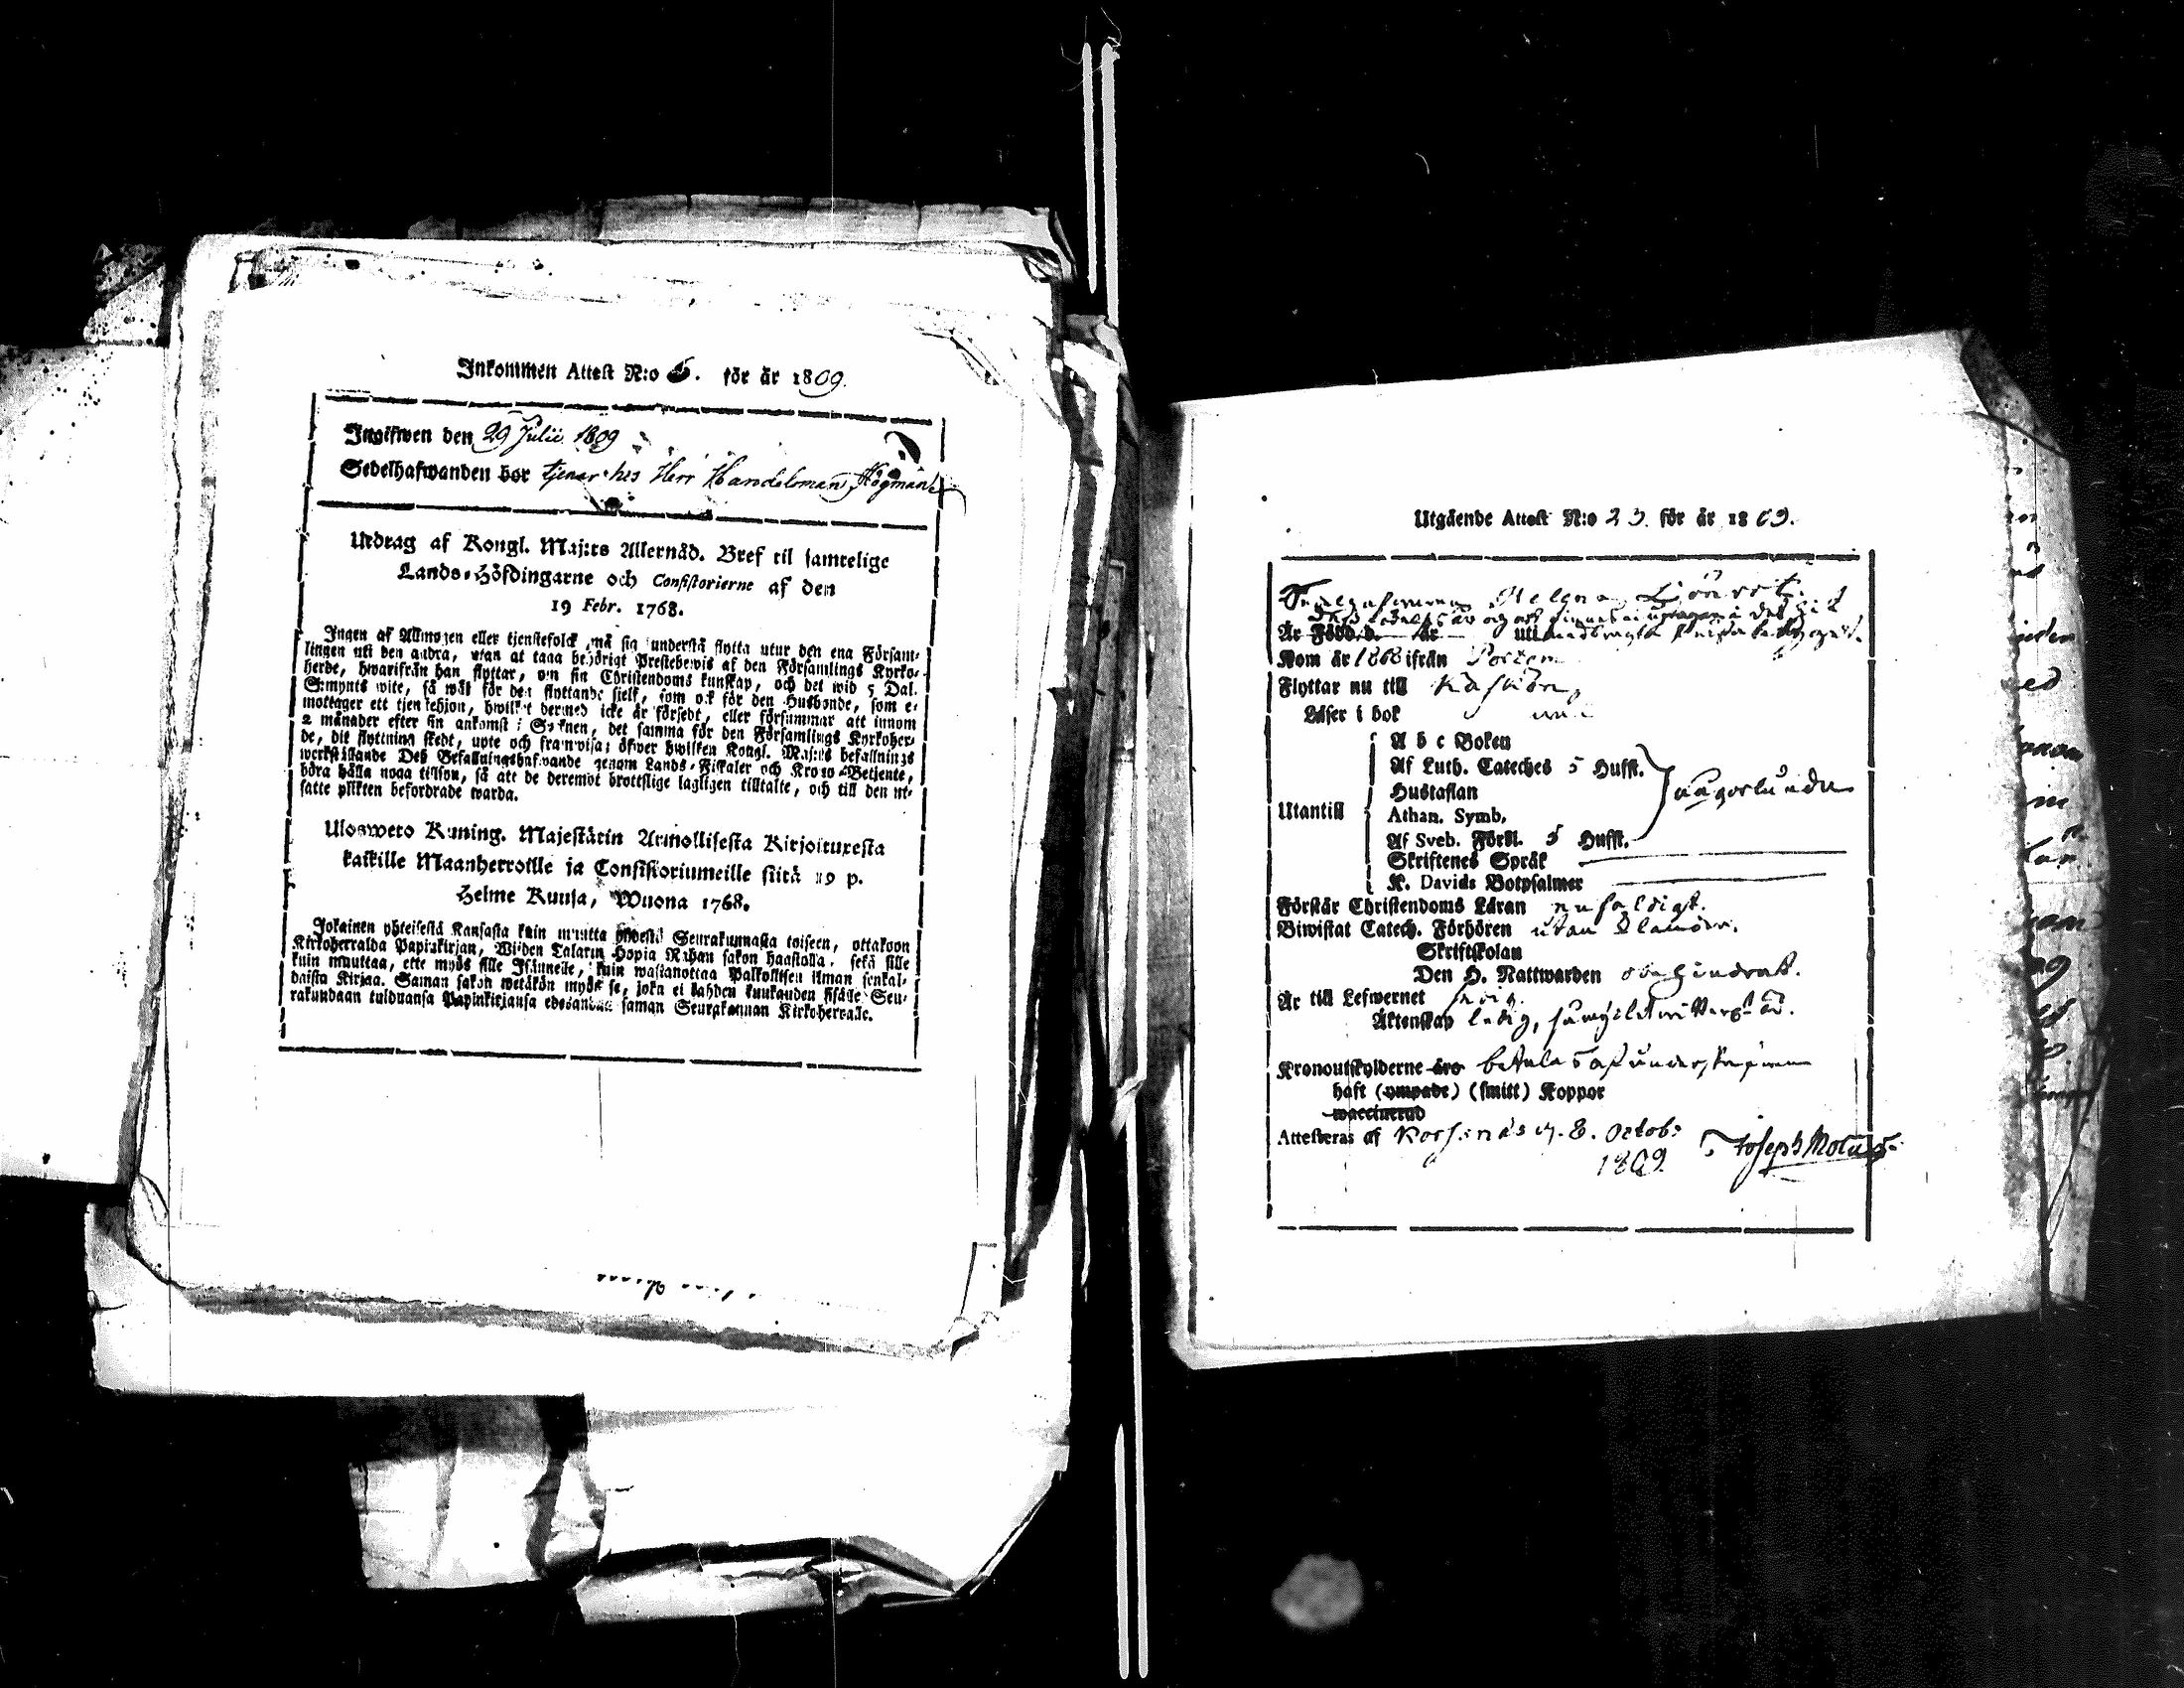 Inkommen Attest N:o 6. för år 1809.
Ingifwen den 29 Julii 1809
Sedelhafwanden bor tjenar hos Herr Handelsman Högman
Utdrag af Kongl. Maj:ts Allernåd. Bref til samtelige
Lands-Höfdingarne och Consistorierne af den
19 Febr. 1768.
Ingen af Allmogen eller tjenstefolck må sig understå flytta utur den ena Försam-
lingen uti den andra, utan at taga behörigt Prestebewis af den Församlings Kyrko-
herde, hwarifrån han flyttar, om sin Christendoms kunskap, och det wid 5 Dal.
S:mynts wite, så wäl för den flyttande sielf, som ock för den Husbonde, som e-
mottager ett tjenstehjon, hwilket dermed icke är försedt, eller försummar att innom
2 månader efter sin ankomst i Soknen, det samma för den Församlings Kyrkoher-
de, dit flyttning skedt, upte och framwisa; öfwer hwilken Kongl. Maj:ts befallnings
werkställande Des Befallningshafwande genom Lands-Fiskaler och Krono-Betjente,
böra hålla noga tillsyn, så att de deremot brottslige lagligen tilltalte, och till den ut-
satte plikten befordrade warda.
Uloswero Kuning. Majestätin Armollisesta Kirjoituxesta
kaikille Maanherroille ja Consistoriumeille siitä 19 p.
Helme Kuusa, Wuona 1768.
Jokainen yhteisestä Kansasta kuin muutta yhdestä Seurakunnasta toiseen, ottakoon
Kirkoherralda Papinkirjan, Wijden Talarin Hopia Rahan sakon haastolla, sekä sille
kuin muuttaa, ette myös sille Isännelle, kuin wastanottaa Palkollisen ilman senkal-
daista Kirjaa. Saman sakon wetäkön myös se, joka ei kahden kuukauden sisälle Seu-
rakundaan tulduansa Papinkirjansa edesanna saman Seurakunnan Kirkoherralle.
Utgående Attest N:o 23. för år 1809.
Helena
År Född d. år uti
Kom år 1808 ifrån
Flyttar nu till Kaskön,
Läser i bok
A b c Boken
Af Luth. Cateches 5 Hufst.
Hustaflan
Utantill
Athan. Symb.
Af Sveb. Förkl. 5 Hufst.
Skriftenes Språk
K. Davids Botpsalmer
Förstår Christendoms Läran
Biwistat Catech. Förhören utan
Skriftskolan
Den H. Nattwarden obehindrat.
Är till Lefwernet
Äktenskap ledig,
Kronoutskylderne äro
haft (ympade) (smitt) Koppor
waccinerad
Attesteras af Korsnäs d. 8. Octob:
1809. Joseph